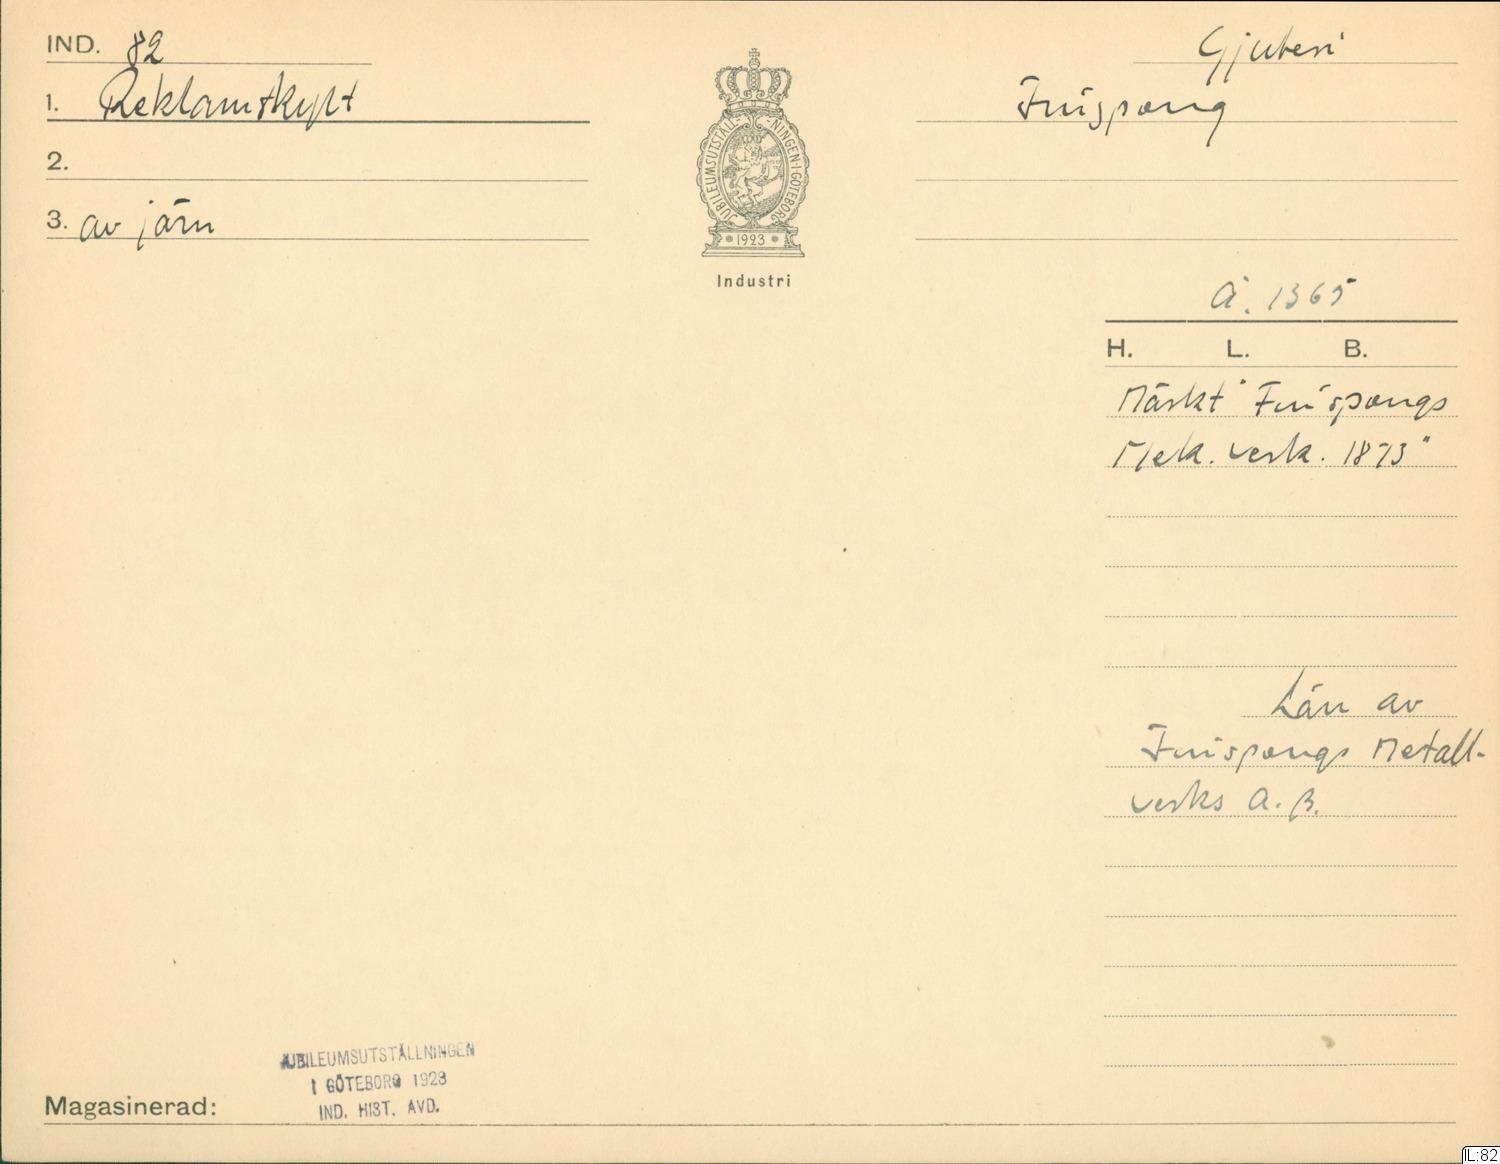 IND. 82
Gjuteri
1. Reklamskylt
Finspong
2.
3. av järn
JUBILEUMSUTSTÄLL-NINGEN·I·GÖTEBORG
1923
Industri
Å. 1365
H. L. B.
Märkt "Finspongs
Mek. verk. 1873"
Lån av
Finspongs Metall-
verks A.B.
JUBILEUMSUTSTÄLLNINGEN
I GÖTEBORG 1923
IND. HIST. AVD.
Magasinerad:
IL:82